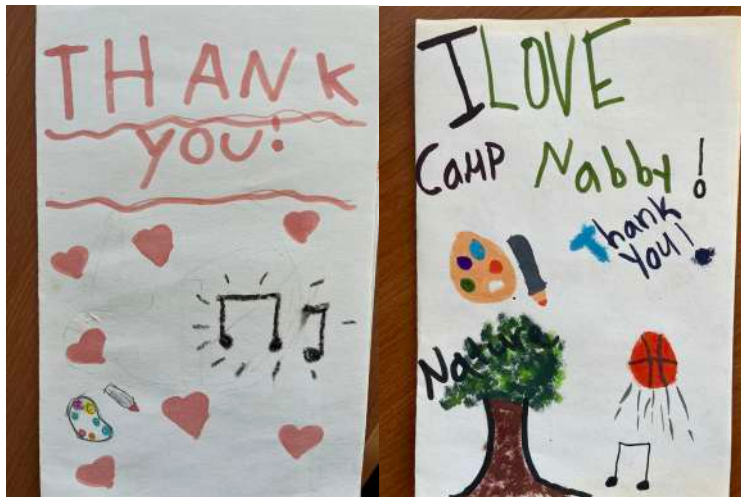 THANK
YOU!
I LOVE
CAMP Nabby!
Thank
You!
Nature